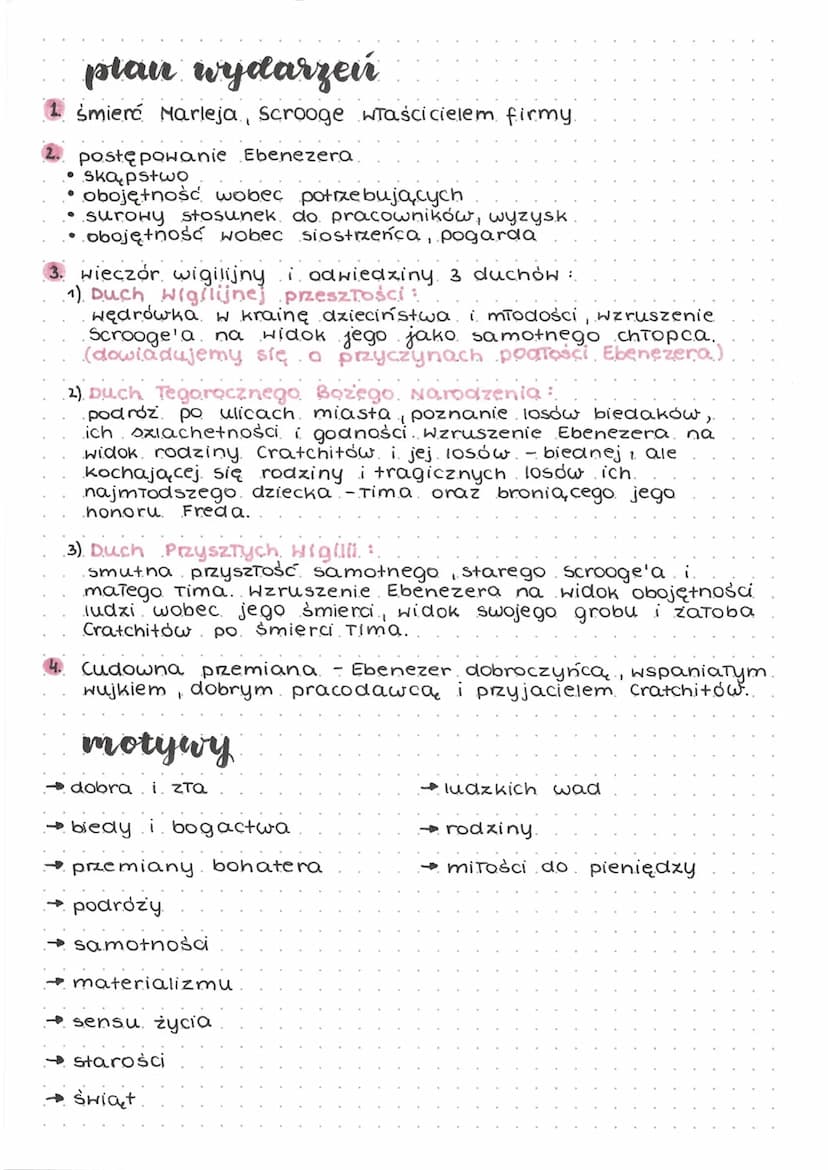 plan wydarzeń
1. śmierć Marleja, Scrooge właścicielem firmy
2. postępowanie Ebenezera
• skąpstwo
• obojętność wobec potrzebujących
• surowy stosunek do pracowników, wyzysk
• obojętność wobec siostrzeńca, pogarda
3. wieczór wigilijny i odwiedziny 3 duchów:
1) Duch Wigilijnej przeszłości:
wędrówka w krainę dzieciństwa i młodości, wzruszenie
Scrooge'a na widok jego jako samotnego chłopca.
(dowiadujemy się o przyczynach podłości Ebenezera)
2) Duch Tegorocznego Bożego Narodzenia:
podróż po ulicach miasta, poznanie losów biedaków,
ich szlachetności i godności. Wzruszenie Ebenezera na
widok rodziny Cratchitów i jej losów - biednej, ale
kochającej się rodziny i tragicznych losów ich
najmłodszego dziecka - Tima oraz broniącego jego
honoru Freda.
3) Duch Przyszłych Wigilii:
smutna przyszłość samotnego, starego Scrooge'a i
małego Tima. Wzruszenie Ebenezera na widok obojętności
ludzi wobec jego śmierci, widok swojego grobu i żałoba
Cratchitów po śmierci Tima.
4. Cudowna przemiana - Ebenezer dobroczyńcą, wspaniałym
wujkiem, dobrym pracodawcą i przyjacielem Cratchitów.
motywy
→ dobra i zła
→ biedy i bogactwa
→ przemiany bohatera
→ podróży
→ samotności
→ materializmu
→ sensu życia
→ starości
→ świąt
→ ludzkich wad
→ rodziny
→ miłości do pieniędzy